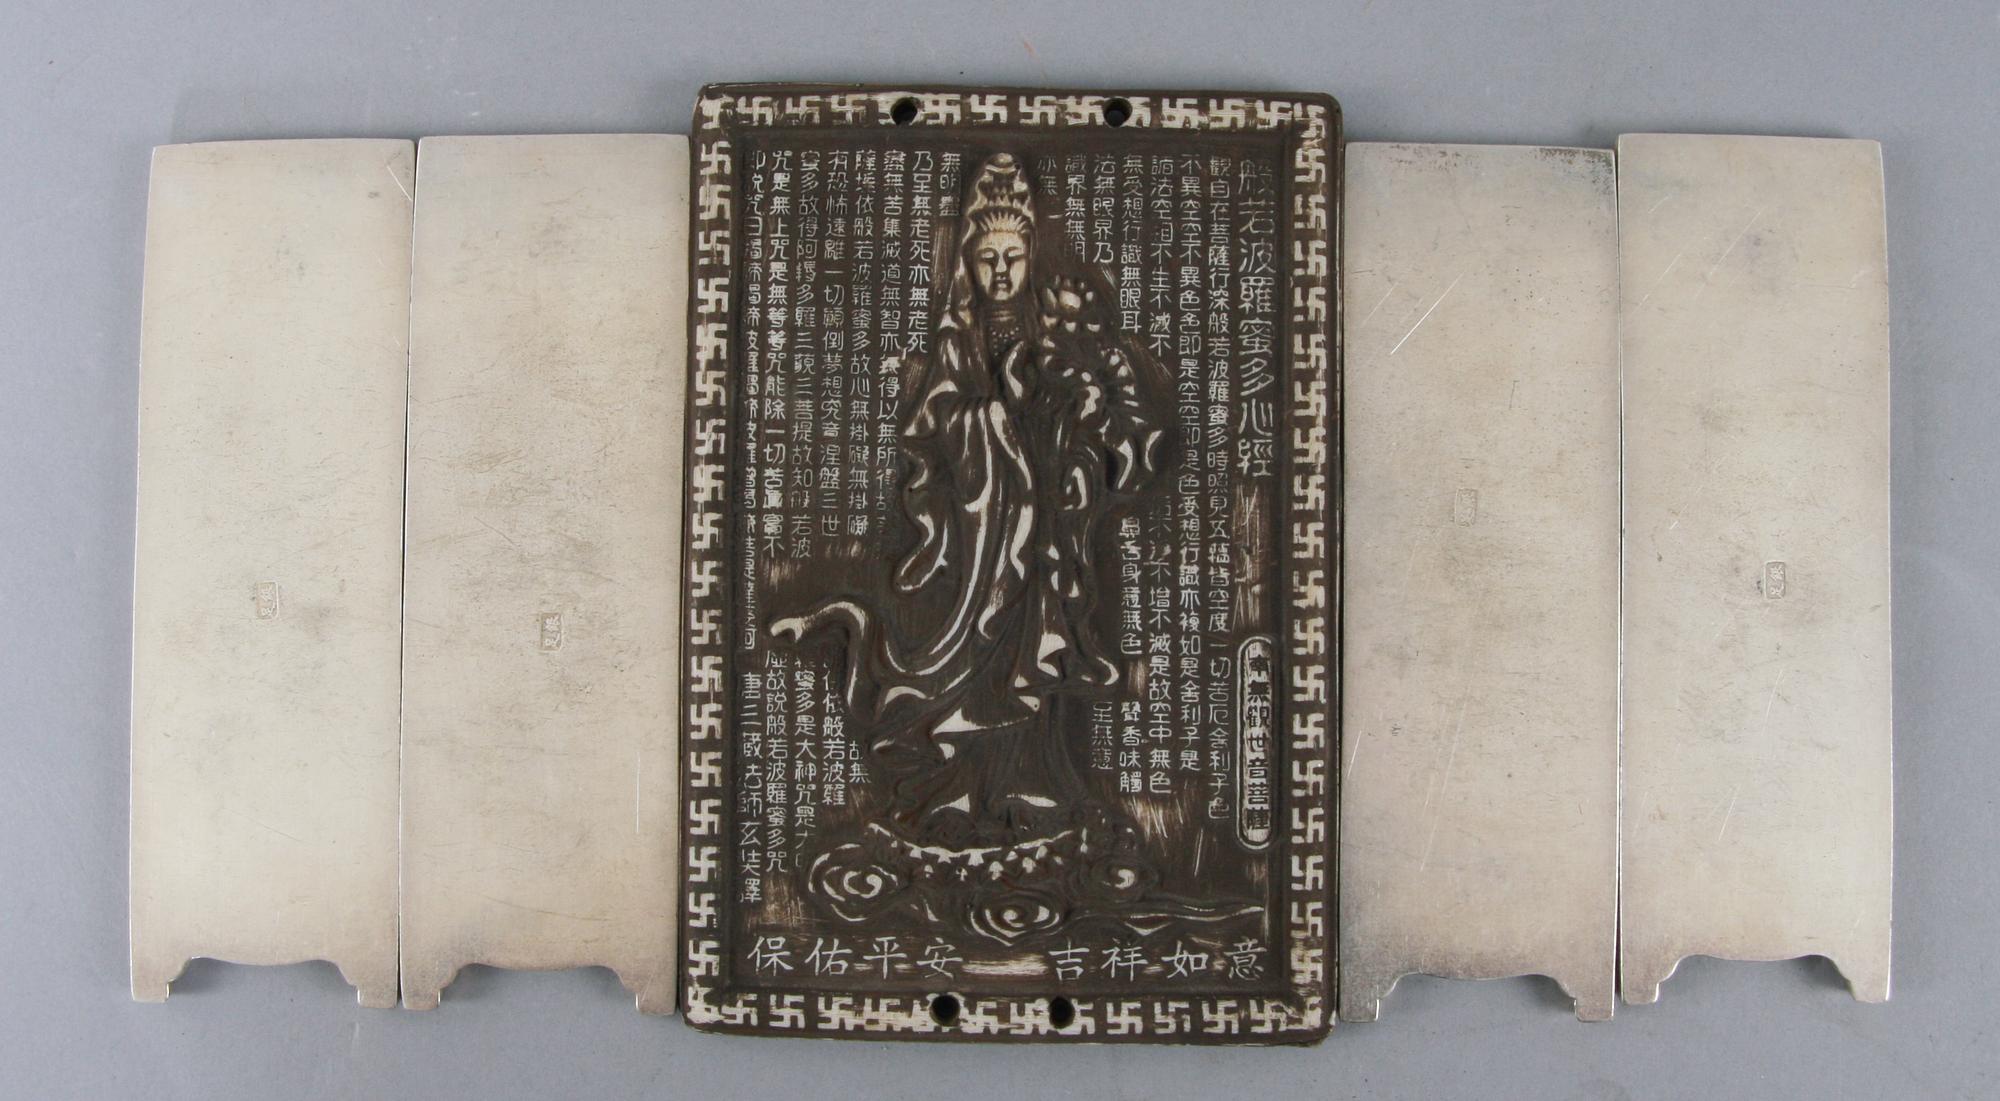 般若波羅蜜多心經
南無観世音菩薩
觀自在菩薩行深般若波羅蜜多時照見五蘊皆空度一切苦厄舍利子色
不異空空不異色色即是空空即是色受想行識亦複如是舍利子是
諸法空相不生不滅不 不增不滅是故空中無色
無受想行識無眼耳 鼻舌身意無色 聲香味觸
法無眼界乃 至無意
識界無無明
亦無
無明盡
乃至無老死亦無老死
盡無苦集滅道無智亦無得以無所得故
薩埵依般若波羅蜜多故心無掛礙無掛礙 故無
有恐怖遠離一切顛倒夢想究竟涅盤三世 依般若波羅
蜜多故得阿耨多羅三藐三菩提故知般若波 羅蜜多是大神咒是大
咒是無上咒是無等等咒能除一切苦真實不 虛故說般若波羅蜜多咒
即說咒曰揭帝揭帝波羅揭帝波羅僧揭帝菩提薩婆訶 唐三藏法師玄奘譯
吉祥如意
保佑平安
足銀
足銀
足銀